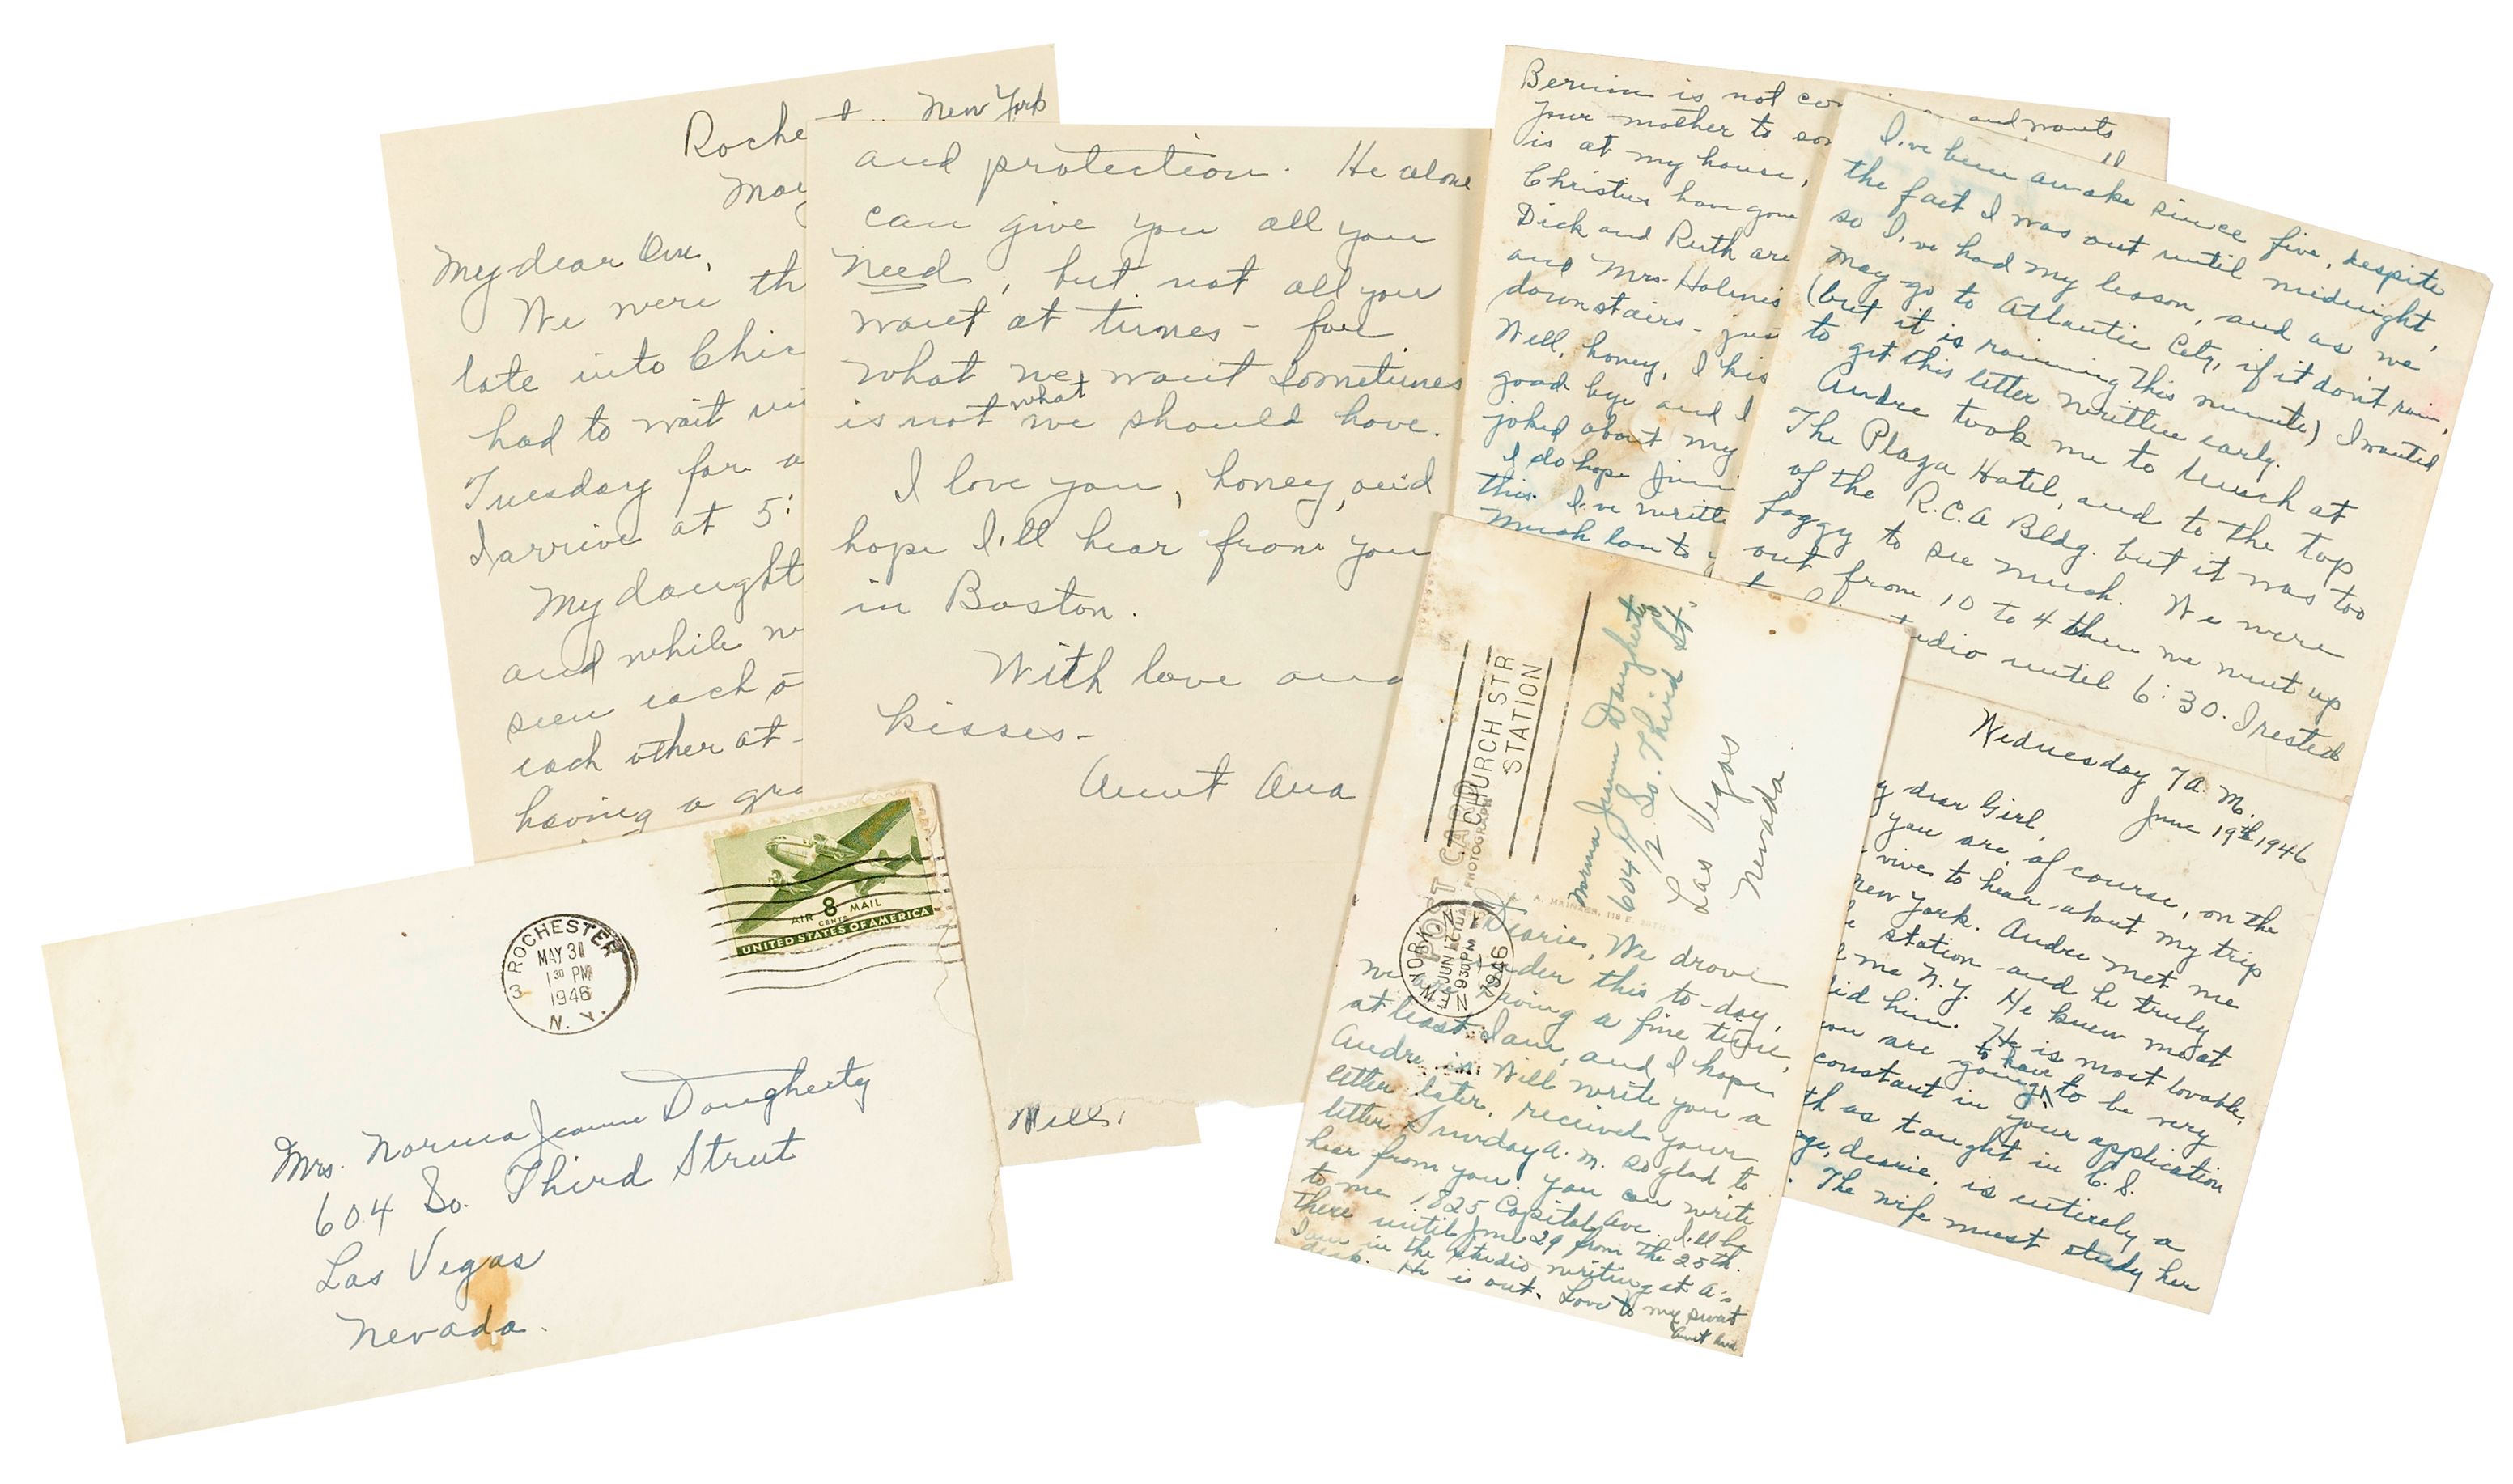 New York
My dear One,
We were th
late into Chic
had to wait
Tuesday for a
I arrive at 5:
My daught
and while w
seen each o
each other at
having a gra
and protection. He alone
can give you all you
need, but not all you
want at times - for
what we want sometimes
is not what we should have.
I love you, honey, and
hope I'll hear from you
in Boston.
With love and
kisses-
Aunt Ana
Well,
ROCHESTER
3
MAY 31
1 30 PM
1946
N. Y.
AIR 8 MAIL
CENTS
UNITED STATES OF AMERICA
Mrs. Norma Jeanne Dougherty
604 So. Third Street
Las Vegas
Nevada.
is not com and wants
your mother to
is at my house,
have gone
Dick and Ruth are
and Mrs. Holmes
downstairs - jus
Well, honey, I kis
good bye and I
joked about my
I do hope
this. I've writt
Much love to
I've been awake since five, despite
the fact I was out until midnight,
so I've had my lesson, and as we
may go to Atlantic City, if it don't rain,
(but it is raining this minute) I wanted
to get this letter written early.
Andre took me to lunch at
The Plaza Hotel, and to the top
of the R.C.A Bldg. but it was too
foggy to see much. We were
out from 10 to 4 then we went up
udio until 6:30. I rested
CHURCH STR
STATION
POST CARD
NEW YORK, N.Y.
JUN
9 30 PM
1946
Norma Jeane Dougherty
604 1/2 So. Third St.
Las Vegas
Nevada.
Dearie, We drove
under this to-day,
we are having a fine time,
at least I am, and I hope
Andre is. Will write you a
letter later, received your
letter Sunday A. M. so glad to
hear from you. You can write
to me 1825 Capitol Ave. I'll be
there until June 29 from the 25th.
I am in the studio writing at A's
desk. He is out. Love to my sweet
Aunt Ana
Wednesday 7 A. M.
June 19th, 1946
y dear Girl,
you are, of course, on the
vive to hear about my trip
New York. Andre met me
station and he truly
me N.Y. He knew most
did him. He is most lovable,
ou are going to have to be very
constant in your application
th as taught in C. S.
age, dearie, is entirely a
. The wife must study her